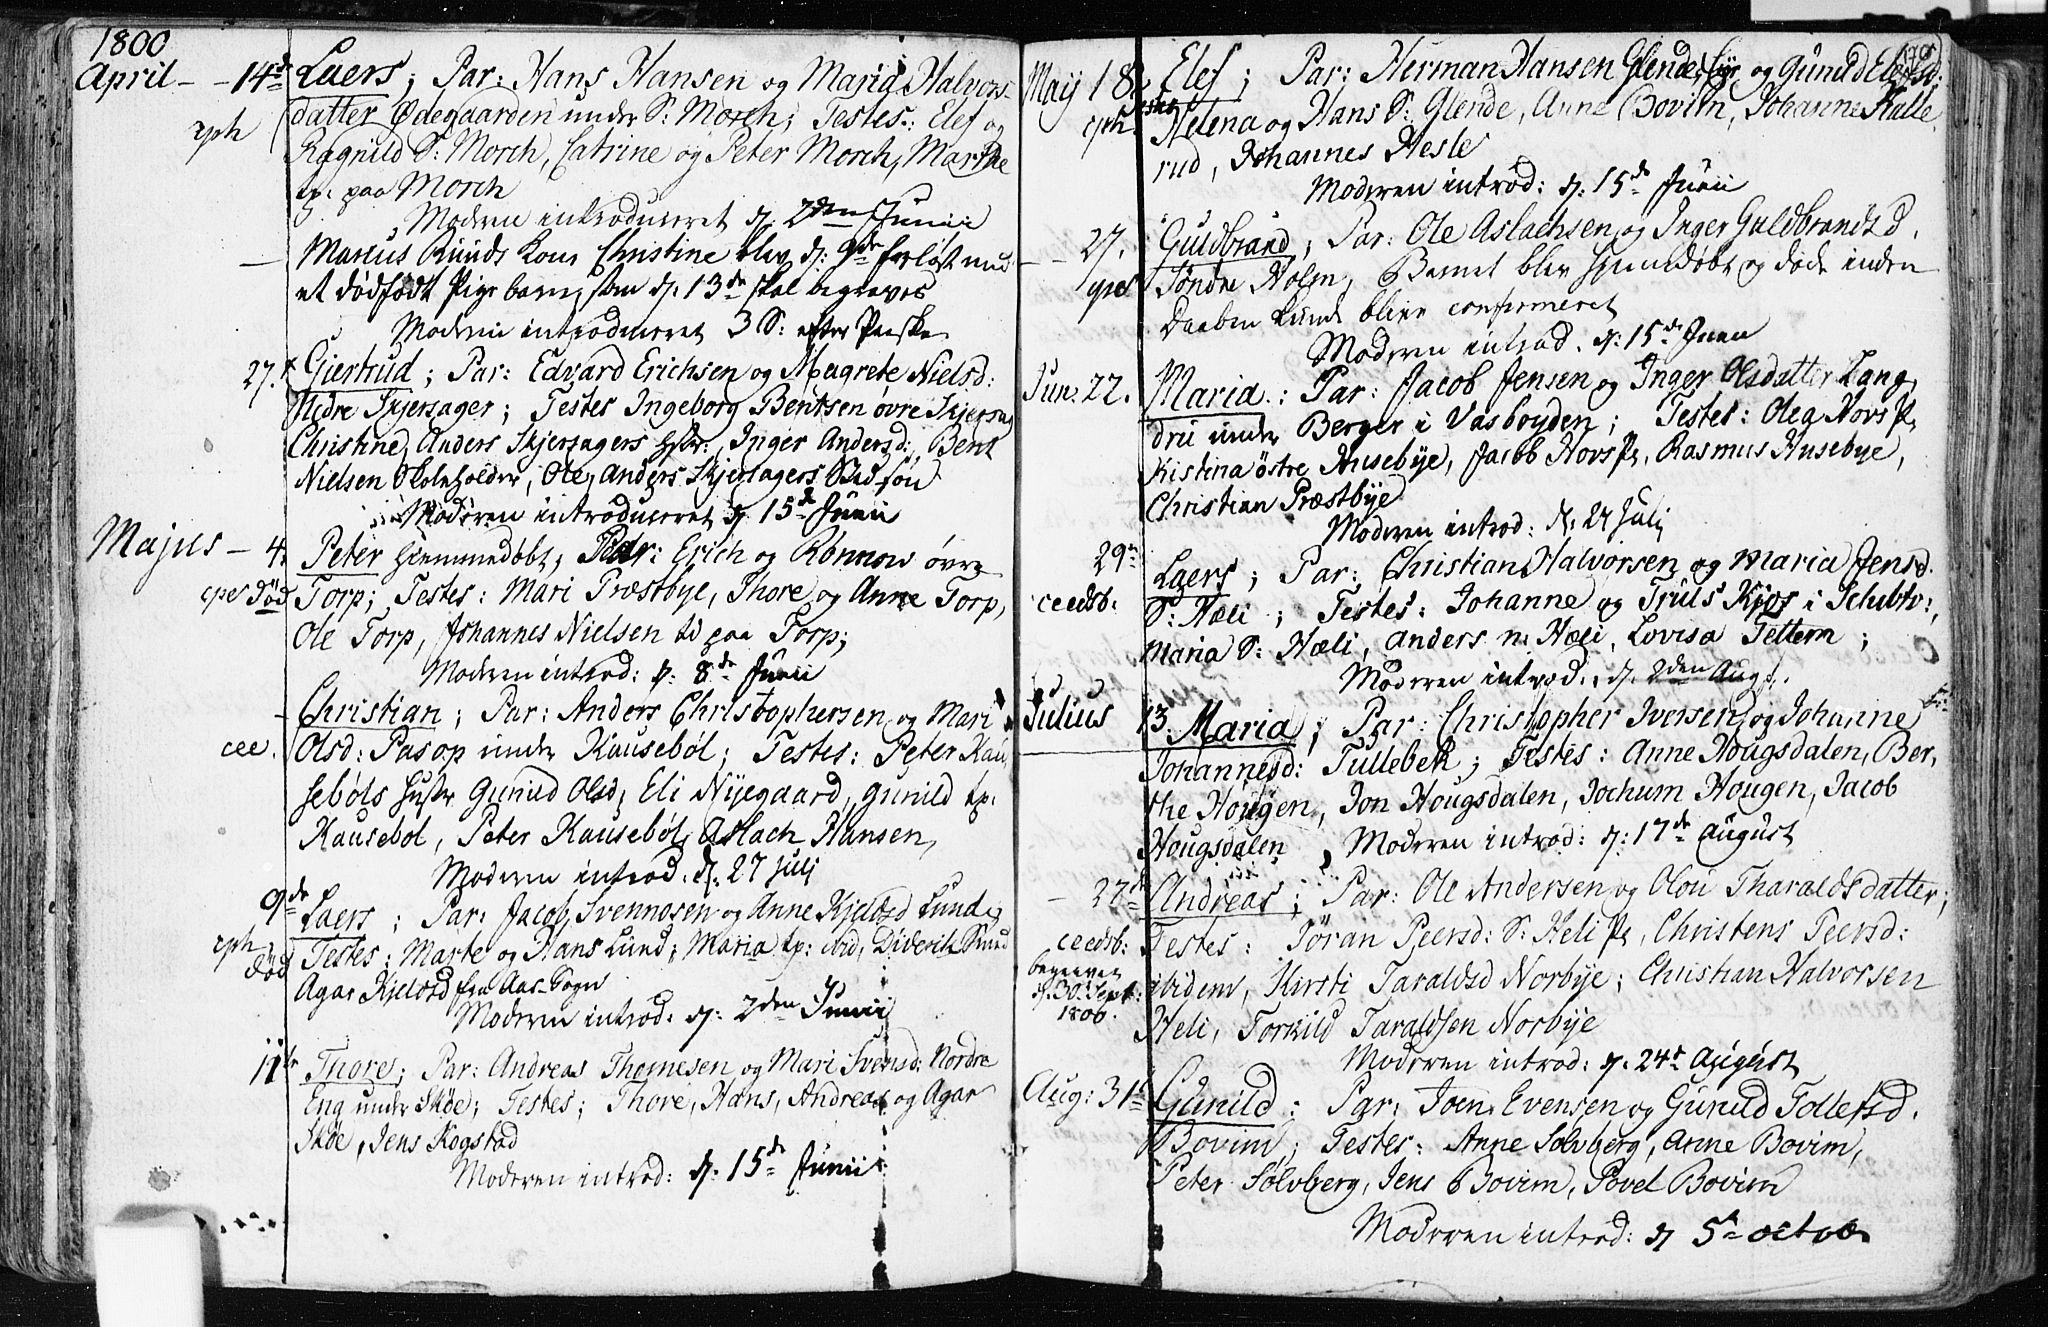 1800
April - - 14de Laers; Par: Hans Hansen og Maria Halvors-
datter Ødegaarden under S: Morch; Testes: Elef og
eph
Ragnild S: Morch, Catrine og Peter Morch, Marthe
tp: paa Morch
Moderen introduceret d. 2den Junii
— Marcus Ruuds Kone Christine blev d: 9de forløst med
et dødfødt Pigebarn, som d. 13de skal begraves
Moderen introduceret 3 S: efter Paaske
27. Giertrud; Par: Edvard Erichsen og Magrete Nielsd:
Nedre Skjersager; Testes Ingeborg Bentsen øvre Skjersag
Christine Anders Skjersagers Hstr:, Inger Andersd:, Bent
Nielsen Skoleholder, Ole, Anders Skjersagers Stedsøn
Moderen introduceret d. 15de Junii
Majus - 4. Peter hiemmedøbt; Par: Erich og Rønnow øvre
cpe død Torp; Testes: Mari Præstbye, Thore og Anne Torp,
Ole Torp, Johannes Nielsen tj paa Torp;
Moderen introd: d. 8de Junii
- Christian; Par: Anders Christophersen og Mari
cee. Olsd: Pasop under Kausebøl; Testes: Peter Kau
sebøls Huster Gunild Olsd, Eli Nyegaard, Gunild tp:
Kausebol, Peter Kausebøl, Aslach Hansen,
Moderen introd. d. 27 Julj
9de Laers; Par: Jacob Svennosen og Anne Kjeløsd Lunde,
eph død Testes: Marte og Hans Lund; Maria tp: ibid, Diderik
Agar Kjeløsd fra Aas-Sogn
Moderen introd: d: 2den Junii
11te Thore; Par: Andreas Thomesen og Mari Svensd: Nordre
Eng under Skøe; Testes; Thore, Hans, Andreas og Agar
Skøe, Jens Kogstad
Moderen introd: d. 15de Junii
Maij 18. Elef; Par: Herman Hansen Glende og Gunild
eph Helena og Hans S: Glende, Anne Bovim, Johanne Kalle
rud, Johannes Hesle
Moderen introd: d. 15de Junii
- 27. Guldbrand; Par: Ole Aslachsen og Inger Guldbrandsd.
Søndre Holm, Barnet blev hjemdøbt og døde inden
Daaben kunde blive confirmeret
Moderen introd. d: 15de Junii
Jun. 22. Maria: Par: Jacob Jensen og Inger Olsdatter Lang
drii under Berger i Vasboyden; Testes: Olea Hovs P,
Kistina østre Husebye, Jacob Hovs P, Rasmus Husebye,
Christian Præstbye
Moderen introd: d. 27 Julj
29de Laers; Par: Christian Halvorsen og Maria Jensd.
ceedsb: S: Hæli; Testes: Johanne og Truls Kjos i Schibtv:,
Maria S: Hæli, Anders n: Hæli, Lovisa Tettern;
Moderen introd. d. 2den Aug.
Julius 13. Maria; Par: Christopher Iversen og Johanne
Johannesd: Tullebek; Testes: Anne Hougsdalen, Ber,
the Hougen, Jon Hougsdalen, Jochum Hougen, Jacob
Hougsdalen, Moderen introd: d: 17de August
- 27de Andreas; Par: Ole Andersen og Olou Tharaldsdatter;
ceedsb: Testes: Jøran Peersd: S: Heli P, Christens Peersd:
begraven
d. 30. Sept:
1800.
ibidem, Kirsti Taraldsd Norbye; Christian Halvorsen
Heli, Torkild Taraldsen Norbye
Moderen introd: d. 24de August
Aug: 31te Gunild: Par: Joen Evensen og Gunild Tollefsd.
Bovim; Testes: Anne Solvberg, Anne Bovim,
Peter Sølvberg, Jens Bovim, Povel Bovim
Moderen introd: d 5te octob.